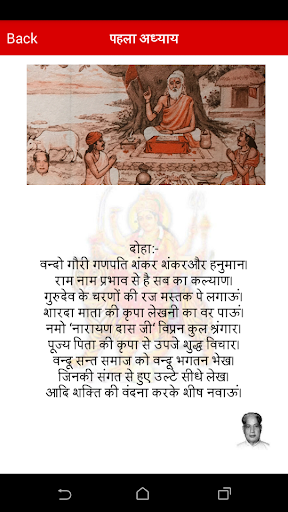 Back
पहला अध्याय
दोहा:-
वन्दो गौरी गणपति शंकर शंकरऔर हनुमान।
राम नाम प्रभाव से है सब का कल्याण।
गुरुदेव के चरणों की रज मस्तक पे लगाऊं।
शारदा माता की कृपा लेखनी का वर पाऊं।
नमो 'नारायण दास जी' विप्रन कुल श्रंगार।
पूज्य पिता की कृपा से उपजे शुद्ध विचार।
वन्दू सन्त समाज को वन्दू भगतन भेख।
जिनकी संगत से हुए उल्टे सीधे लेख।
आदि शक्ति की वंदना करके शीष नवाऊं।